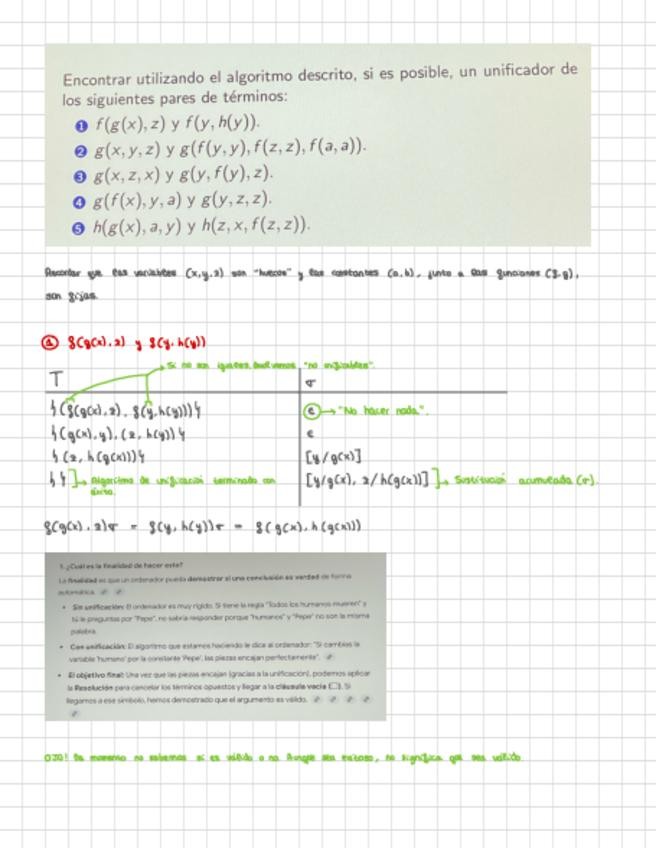 Encontrar utilizando el algoritmo descrito, si es posible, un unificador de
los siguientes pares de términos:
1 f(g(x), z) y f(y, h(y)).
2 g(x, y, z) y g(f(y, y), f(z, z), f(a, a)).
3 g(x, z, x) y g(y, f(y), z).
4 g(f(x), y, a) y g(y, z, z).
5 h(g(x), a, y) y h(z, x, f(z, z)).
Recordar que las variables (x,y,z) son "huecos" y las constantes (a,b), junto a las funciones (f,g),
son fijas.
1 f(g(x), z) y f(y, h(y))
Si no son iguales, devolvemos "no unificables".
T σ
{(f(g(x), z), f(y, h(y)))} ε → "No hacer nada".
{(g(x), y), (z, h(y))} ε
{(z, h(g(x)))} [y/g(x)]
{ } → Algoritmo de unificación terminado con [y/g(x), z/h(g(x))] → Sustitución acumulada (σ).
éxito.
f(g(x), z)σ = f(y, h(y))σ = f(g(x), h(g(x)))
1. ¿Cuál es la finalidad de hacer esto?
La finalidad es que un ordenador pueda demostrar si una conclusión es verdad de forma
automática.
• Sin unificación: El ordenador es muy rígido. Si tiene la regla "Todos los humanos mueren" y
tú le preguntas por "Pepe", no sabría responder porque "humanos" y "Pepe" no son la misma
palabra.
• Con unificación: El algoritmo que estamos haciendo le dice al ordenador: "Si cambias la
variable 'humano' por la constante 'Pepe', las piezas encajan perfectamente".
• El objetivo final: Una vez que las piezas encajan (gracias a la unificación), podemos aplicar
la Resolución para cancelar los términos opuestos y llegar a la cláusula vacía (□). Si
llegamos a ese símbolo, hemos demostrado que el argumento es válido.
OJO! De momento no sabemos si es válido o no. Aunque sea exitoso, no significa que sea válido.